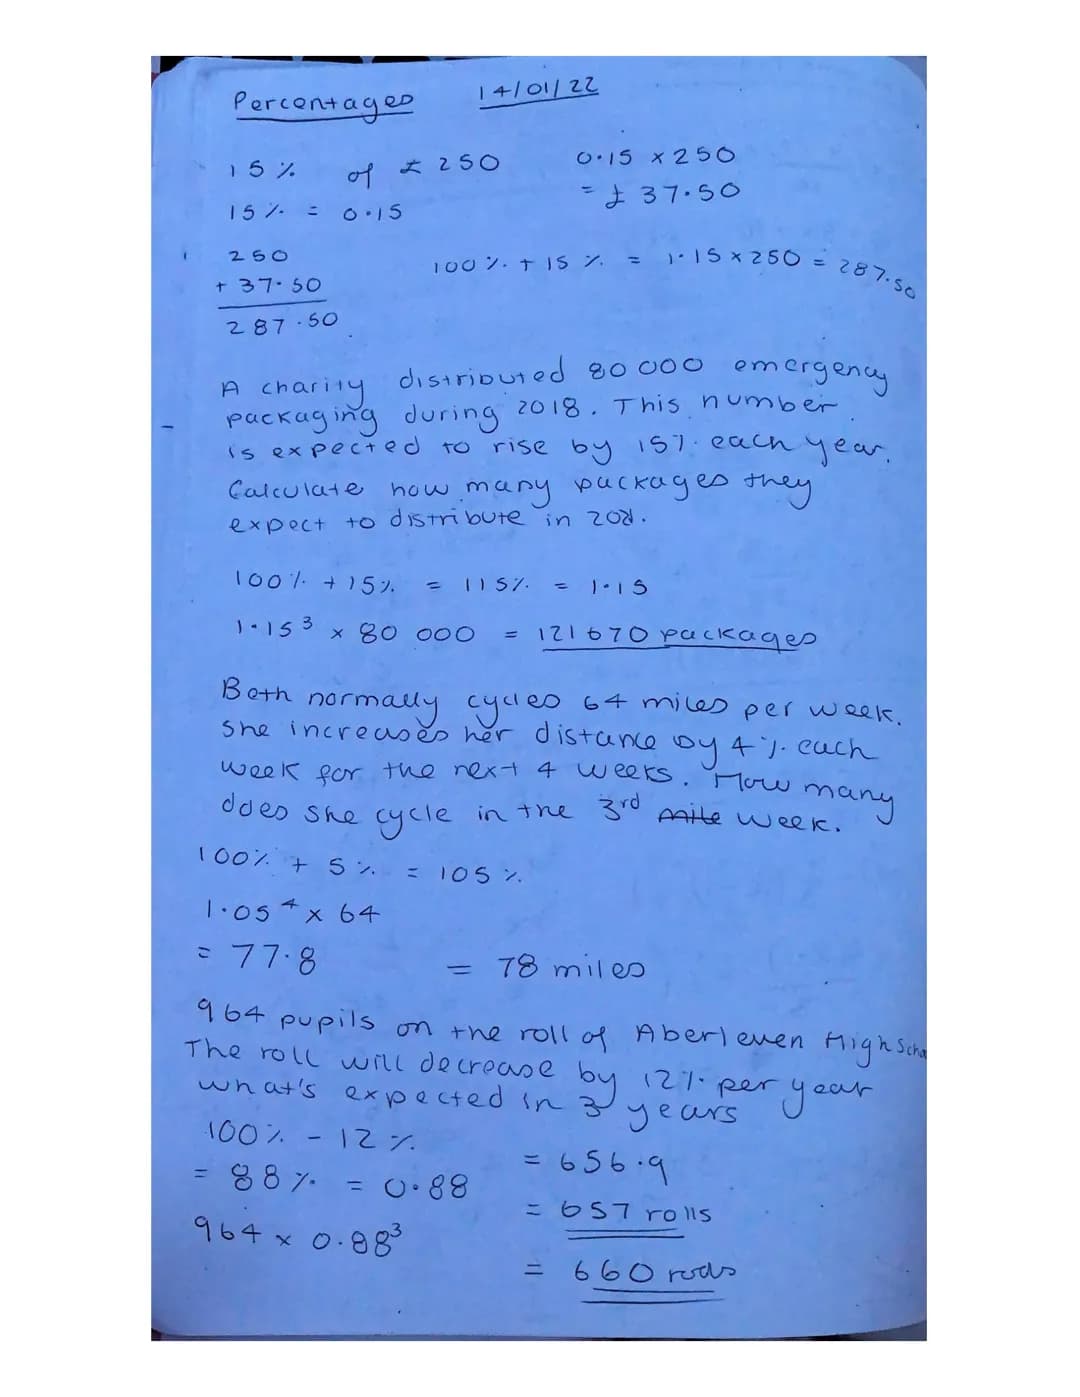 Percentages 14/01/22
15% of £250 0.15 x 250
= £37.50
15% = 0.15
250
+ 37.50
287.50
100% + 15% = 1.15 x 250 = 287.50
A charity distributed 80 000 emergency
packaging during 2018. This number
is expected to rise by 15% each year.
Calculate how many packages they
expect to distribute in 2021.
100% + 15% = 115% = 1.15
1.15³ x 80 000 = 121670 packages
Beth normally cycles 64 miles per week.
She increases her distance by 4% each
week for the next 4 weeks. How many
does she cycle in the 3rd mile week.
100% + 5% = 105%
1.05⁴ x 64
= 77.8 = 78 miles
964 pupils on the roll of Aberleven High Scho
The roll will decrease by 12% per year
what's expected in 3 years
100% - 12%
= 88% = 0.88
964 x 0.88³
= 656.9
= 657 rolls
= 660 rods